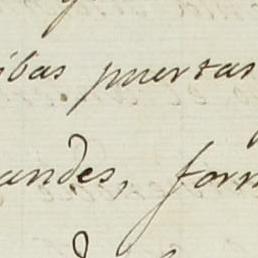 ibas puertas
andes, for